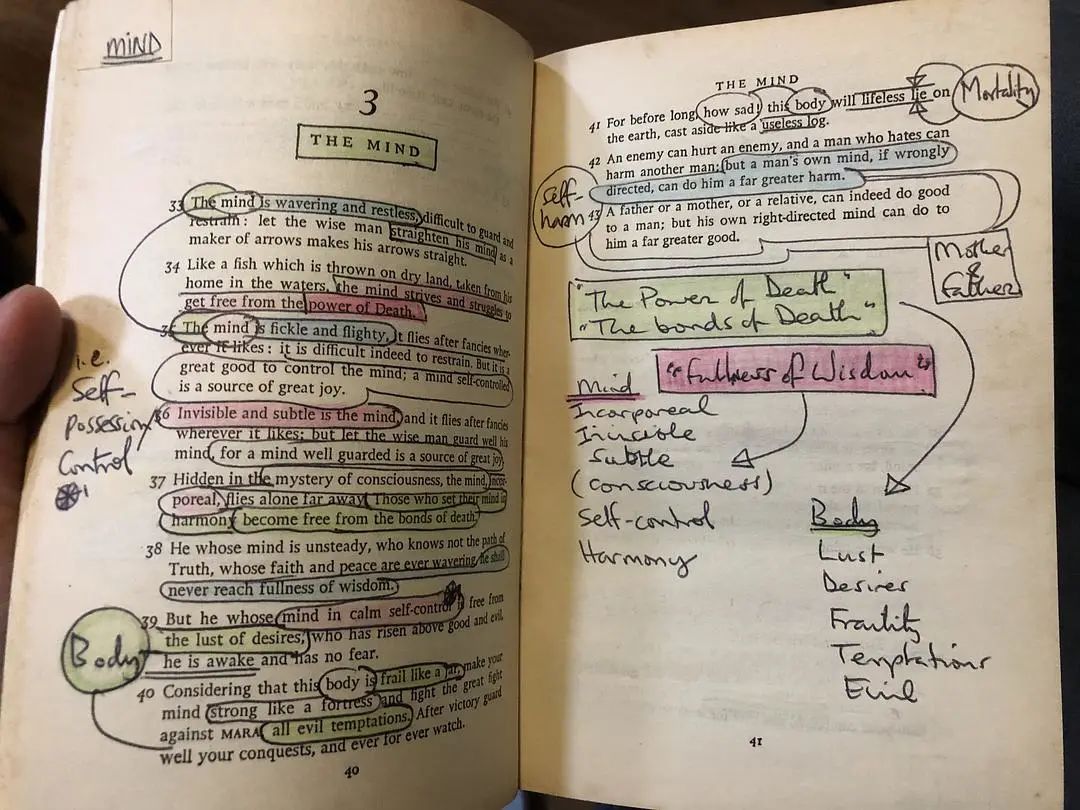 MIND
3
THE MIND
33 The mind is wavering and restless, difficult to guard and
restrain: let the wise man straighten his mind as a
maker of arrows makes his arrows straight.
34 Like a fish which is thrown on dry land, taken from his
home in the waters, the mind strives and struggles to
get free from the power of Death.
35 The mind is fickle and flighty, it flies after fancies wher-
ever it likes: it is difficult indeed to restrain. But it is a
great good to control the mind; a mind self-controlled
is a source of great joy.
i.e.
Self-
possession/
Control
36 Invisible and subtle is the mind, and it flies after fancies
wherever it likes; but let the wise man guard well his
mind, for a mind well guarded is a source of great joy.
37 Hidden in the mystery of consciousness, the mind, incor-
poreal, flies alone far away. Those who set their mind in
harmony become free from the bonds of death.
38 He whose mind is unsteady, who knows not the path of
Truth, whose faith and peace are ever wavering, he shall
never reach fullness of wisdom.
39 But he whose mind in calm self-control is free from
the lust of desires, who has risen above good and evil,
he is awake and has no fear.
Body
40 Considering that this body is frail like a jar, make your
mind strong like a fortress and fight the great fight
against MARA, all evil temptations. After victory guard
well your conquests, and ever for ever watch.
40
THE MIND
41 For before long, how sad! this body will lifeless lie on
the earth, cast aside like a useless log.
Mortality
42 An enemy can hurt an enemy, and a man who hates can
harm another man; but a man's own mind, if wrongly
directed, can do him a far greater harm.
Self-
harm
43 A father or a mother, or a relative, can indeed do good
to a man; but his own right-directed mind can do to
him a far greater good.
Mother
&
Father
"The Power of Death"
"The bonds of Death"
"Fullness of Wisdom"
Mind
Incorporeal
Invisible
Subtle
(consciousness)
Self-control
Harmony
Body
Lust
Desires
Fraility
Temptations
Evil
41